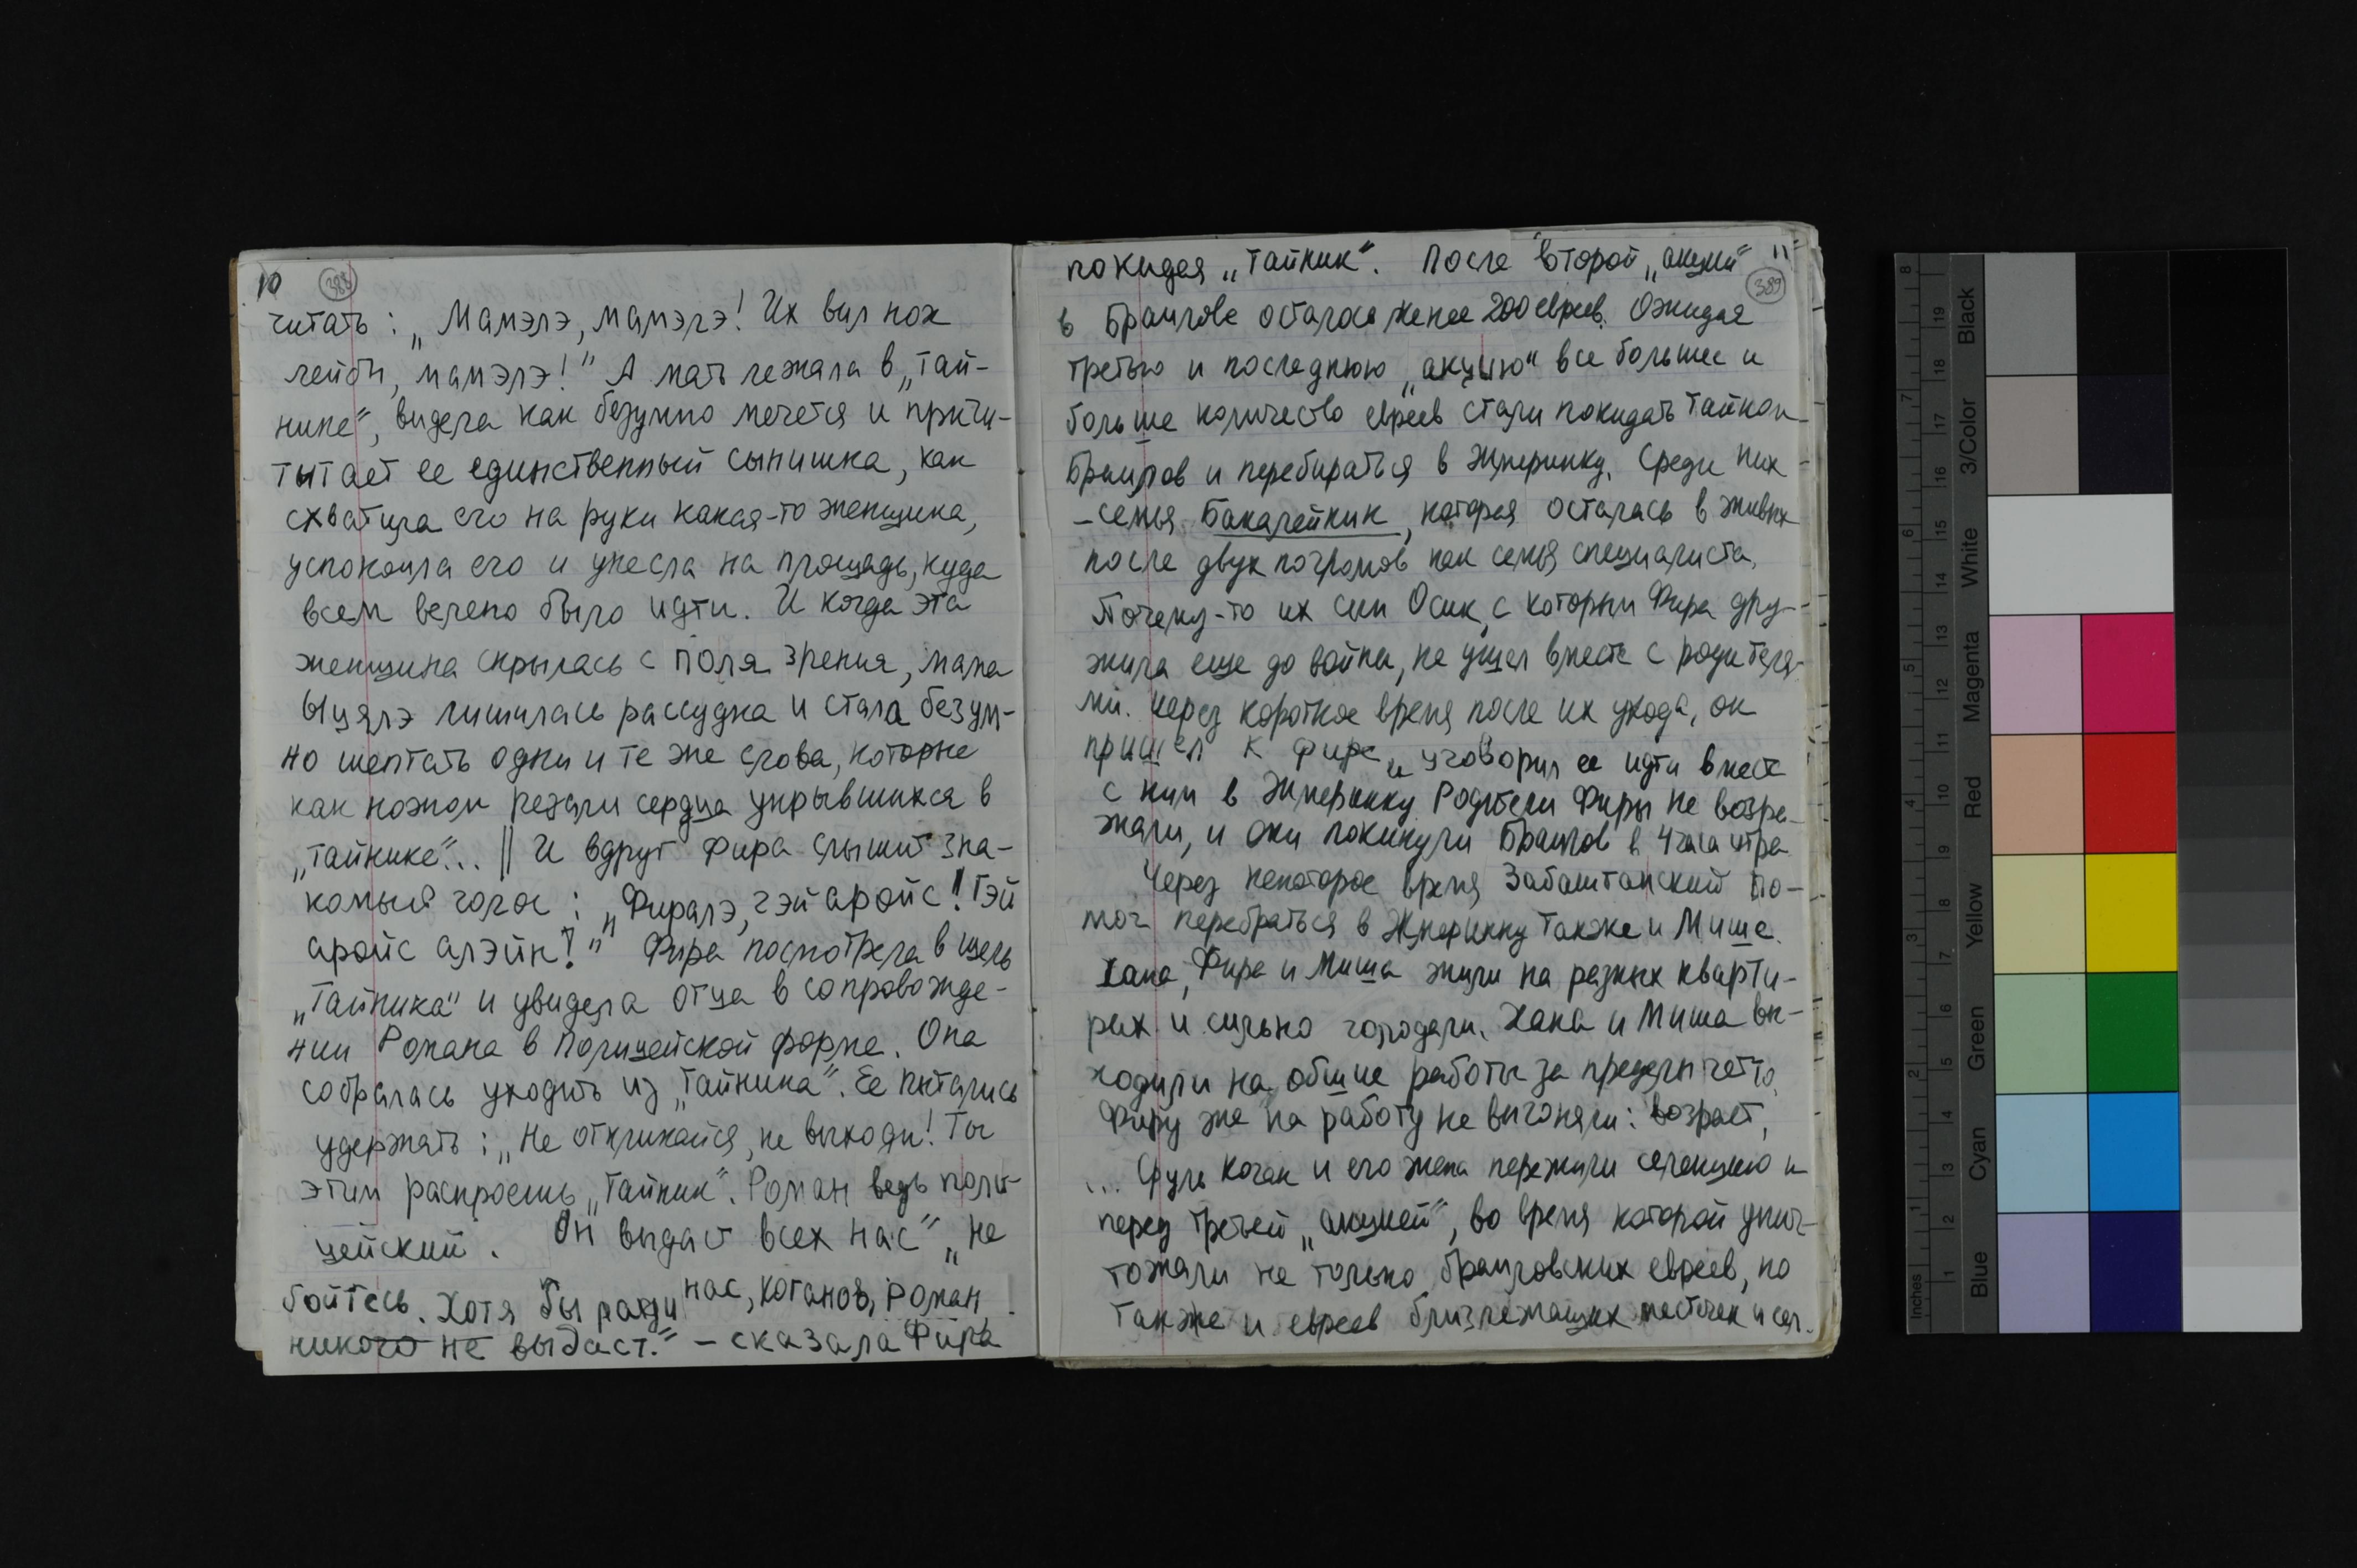 10
388
читать: „Мамэлэ, мамэлэ! Их вил нох
лейбн, мамэлэ!" А мать лежала в „тай-
нике", видела как безумно мечется и причи-
тытает ее единственный сынишка, как
схватила его на руки какая-то женщина,
успокоила его и унесла на площадь, куда
всем велено было идти. И когда эта
женщина скрылась с поля зрения, мама
Ыцялэ лишилась рассудка и стала безум-
но шептать одни и те же слова, которые
как ножом резали сердца укрывшихся в
„тайнике"... || И вдруг Фира слышит зна-
комый голос: „Фиралэ, гэй аройс! Гэй
аройс алэйн!" Фира посмотрела в щель
„Тайника" и увидела отца в сопровожде-
нии Романа в полицейской форме. Она
собралась уходить из „Тайника". Ее пытались
удержать: „Не откликайся, не выходи! Ты
этим раскроешь „Тайник". Роман ведь поли-
цейский. Он выдаст всех нас" „Не
бойтесь. Хотя бы ради нас, Коганов, Роман
никого не выдаст." – сказала Фира
11
389
покидая „Тайник". После второй „акции"
в Браилове осталось менее 200 евреев. Ожидая
третью и последнюю „акцию" все большее и
больше количество евреев стали покидать тайком
Браилов и перебираться в Жмеринку. Среди них –
– семья Бакалейник, которая осталась в живых
после двух погромов как семья специалиста.
Почему-то их сын Осик, с которым Фира дру-
жила еще до войны, не ушел вместе с родителя-
ми. Через короткое время после их ухода, он
пришел к Фире и уговорил ее идти вместе
с ним в Жмеринку Родители Фиры не возра-
жали, и они покинули Браилов в 4 часа утра
Через некоторое время Забаштанский по-
мог перебраться в Жмеринку также и Мише.
Хана, Фира и Миша жили на разных кварти-
рах и сильно голодали. Хана и Миша вы-
ходили на общие работы за пределы гетто.
Фиру же на работу не выгоняли: возраст,
... Сруль Коган и его жена пережили селекцию и
перед третьей „акцией", во время которой унич-
тожали не только браиловских евреев, но
также и евреев близлежащих местечек и сел.
Inches
1
2
3
4
5
6
7
8
1
2
3
4
5
6
7
8
9
10
11
12
13
14
15
16
17
18
19
Blue
Cyan
Green
Yellow
Red
Magenta
White
3/Color
Black